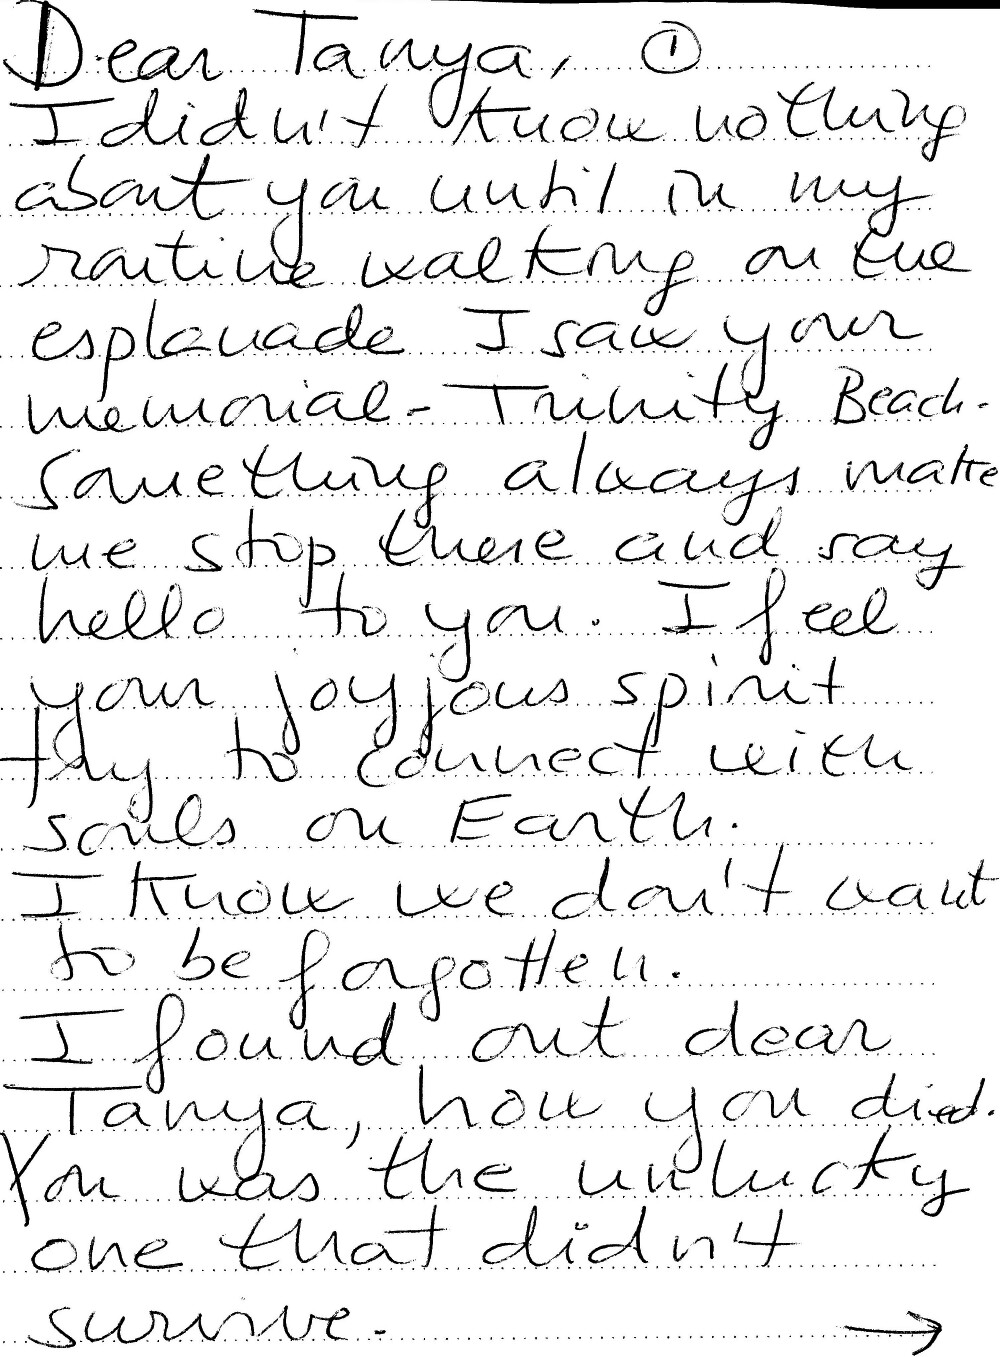 Dear Tanya, ①
I didn't know nothing
about you until in my
routine walking on the
esplanade I saw your
memorial - Trinity Beach.
Something always make
me stop there and say
hello to you. I feel
your joyjous spirit
try to connect with
souls on Earth.
I know we don't want
to be forgotten.
I found out dear
Tanya, how you died.
You was the unlucky
one that didn't
survive. →